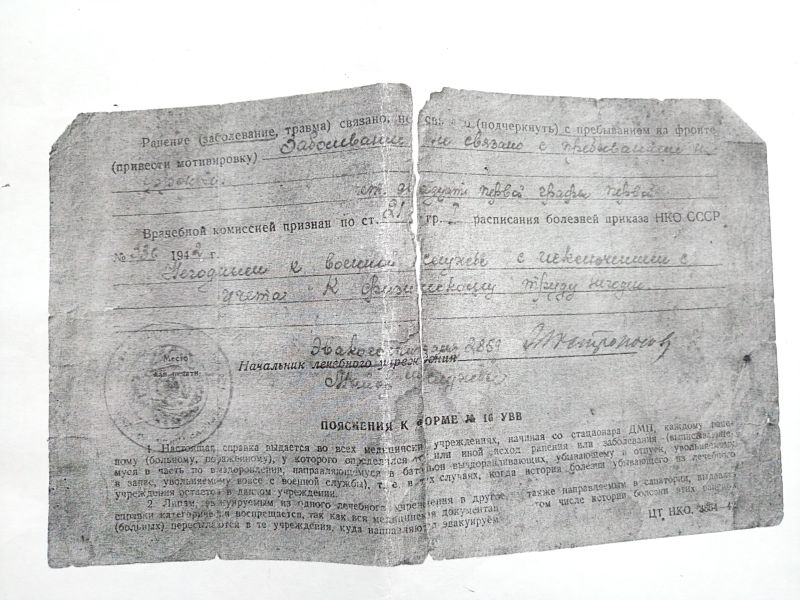 Ранение (заболевание, травма) связано, не св (подчеркнуть) с пребыванием на фронте
(привести мотивировку) Заболевание связано с пребыванием на
фронте.
ст. двадцать первой графы первой
Врачебной комиссией признан по ст. 21 гр. расписания болезней приказа НКО СССР
№ 336 1942 г.
Негодным к военной службе с исключением с
учета. К физическому труду негоден.
Эвакогоспиталя 2869
Место
для печати
Начальник лечебного учреждения
ПОЯСНЕНИЯ К ФОРМЕ № 16 УВВ
1. Настоящая справка выдается во всех медицинских учреждениях, начиная со стационара ДМП, каждому ране-
ному (больному, пораженному), у которого определился или иной исход ранения или заболевания (выписываемо-
муся в часть по выздоровлении, направляющемуся в батальон выздоравливающих, убывающему в отпуск, увольняемому
в запас, увольняемому вовсе с военной службы), т. е. в тех случаях, когда история болезни убывающего из лечебного
учреждения остается в данном учреждении.
2. Лицам, эвакуируемым из одного лечебного учреждения в другое, а также направляемым в санатории, выдавать
справки категорически воспрещается, так как вся медицинская документация, в том числе истории болезни этих раненых
(больных) пересылаются в те учреждения, куда направляются эвакуируем
ЦТ НКО.